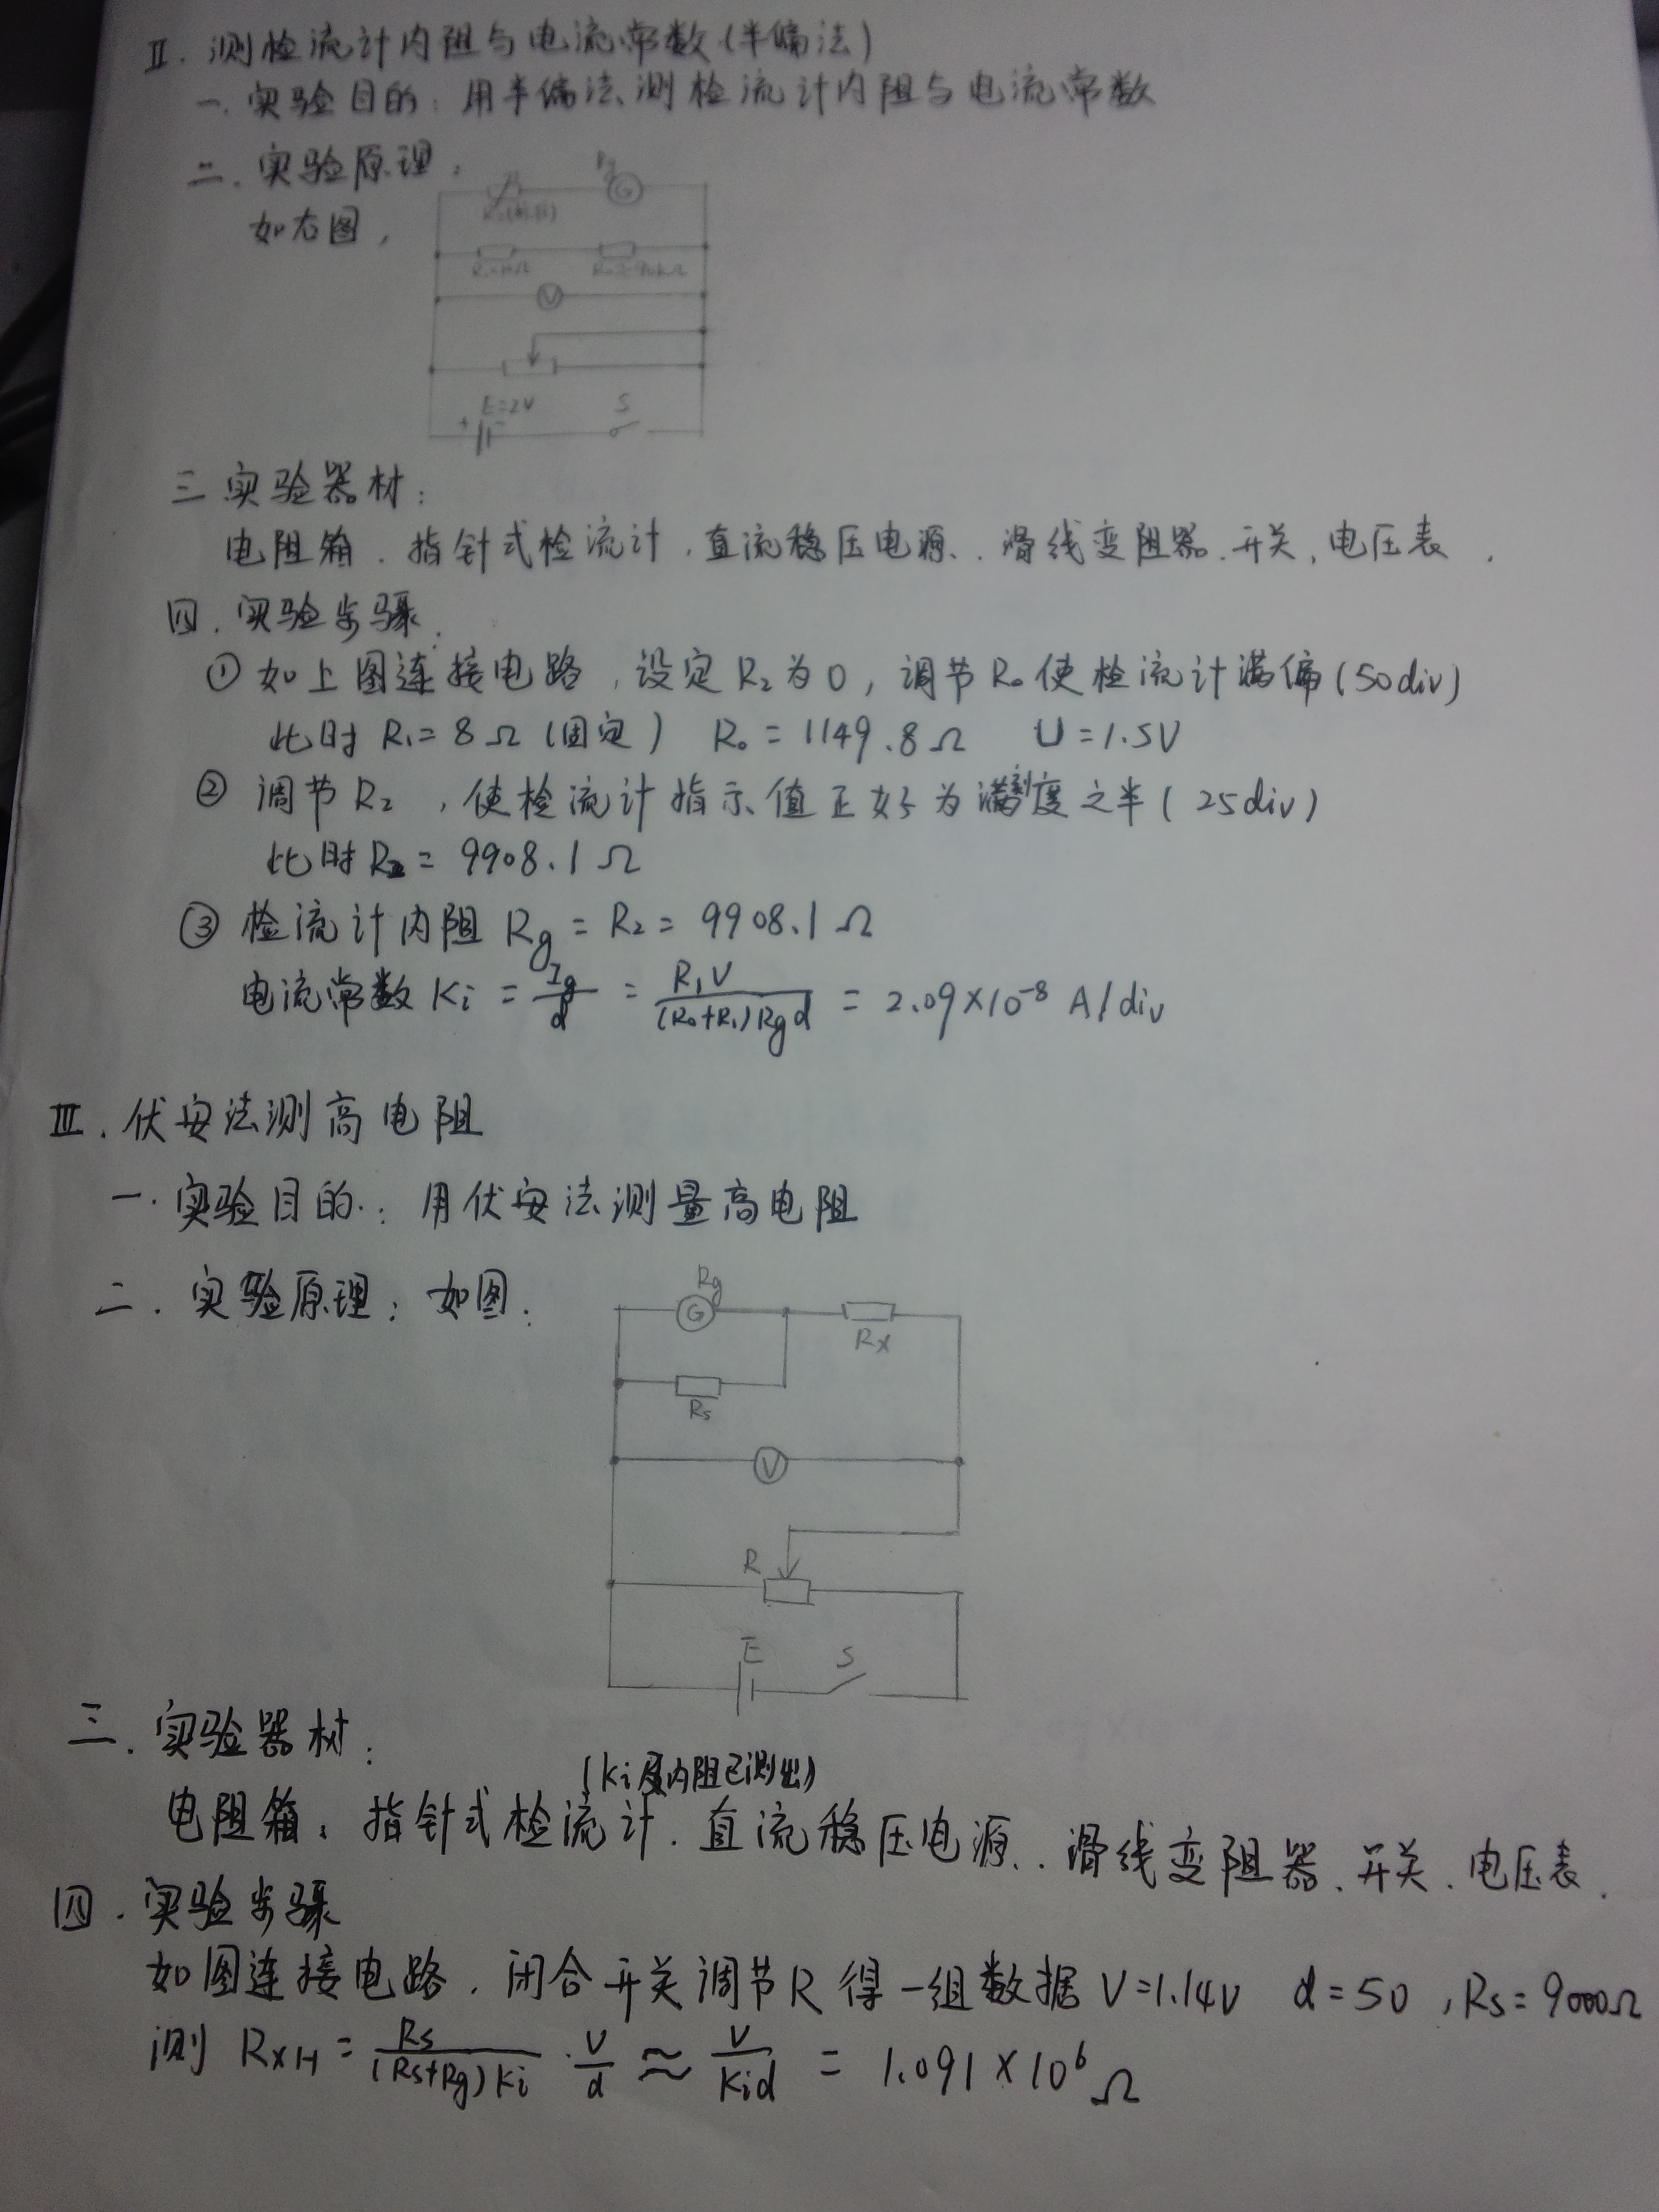 Ⅱ. 测检流计内阻与电流常数(半偏法)
一. 实验目的: 用半偏法测检流计内阻与电流常数
二. 实验原理:
如右图,
Rg
G
V
E=2V
S
三 实验器材:
电阻箱. 指针式检流计. 直流稳压电源. 滑线变阻器. 开关, 电压表.
四. 实验步骤.
① 如上图连接电路, 设定R₂为0, 调节R₀使检流计满偏(50div)
此时 R₁=8Ω(固定) R₀=1149.8Ω U=1.5V
② 调节R₂, 使检流计指示值正好为满刻度之半(25div)
此时R₂=9908.1Ω
③ 检流计内阻 Rg=R₂=9908.1Ω
电流常数Ki = Ig/d = R₁V/((R₀+R₁)Rgd) = 2.09×10⁻⁸ A/div
Ⅲ. 伏安法测高电阻
一. 实验目的: 用伏安法测量高电阻
二. 实验原理: 如图:
Rg
G
Rx
Rs
V
R
E
S
三. 实验器材:
(Ki及内阻已测出)
电阻箱. 指针式检流计. 直流稳压电源. 滑线变阻器. 开关. 电压表.
四. 实验步骤
如图连接电路. 闭合开关调节R得一组数据V=1.14V d=50, Rs=9000Ω
测 RxH = Rs/((Rs+Rg)Ki) · V/d ≈ V/Kid = 1.091×10⁶Ω